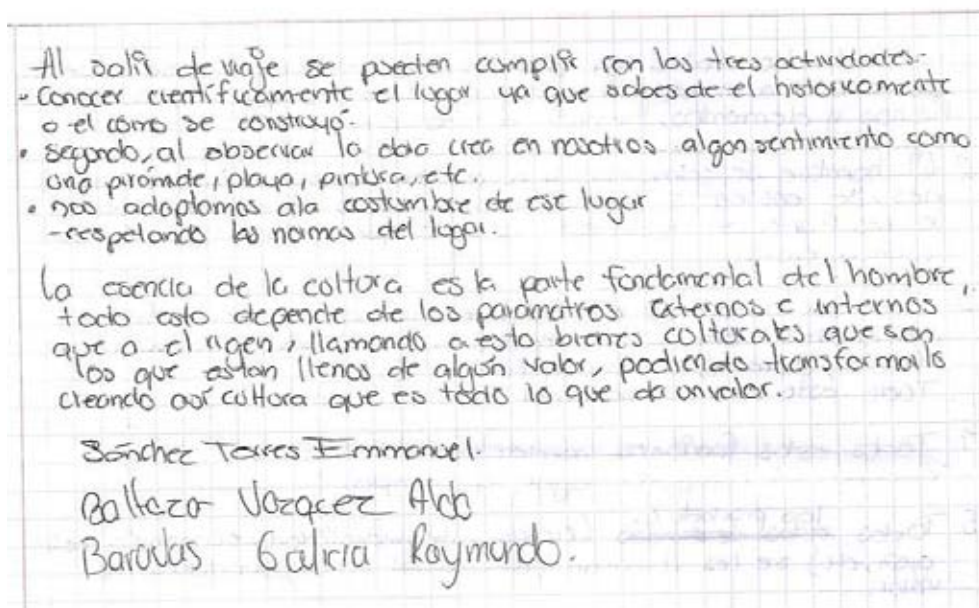 Al salir de viaje se pueden cumplir con las tres actividades:
• Conocer científicamente el lugar ya que sabes de el historicamente
o el cómo se construyó.
• segundo, al observar lo daio crea en nosotros algon sentimiento como
una pirámide, playa, pintura, etc.
• nos adaptamos ala costumbre de ese lugar
-respetando las normas del lugar.
La esencia de la coltura es la parte fondamental del hombre,
todo esto depende de los parametros externos e internos
que a el rigen, llamando a esto bienes colturales que son
los que estan llenos de algún valor, podiendo transformarlo
creando así coltura que es todo lo que da un valor.
Sánchez Torres Emmanuel.
Baltazar Vazquez Aldo
Baradas Galicia Raymundo.